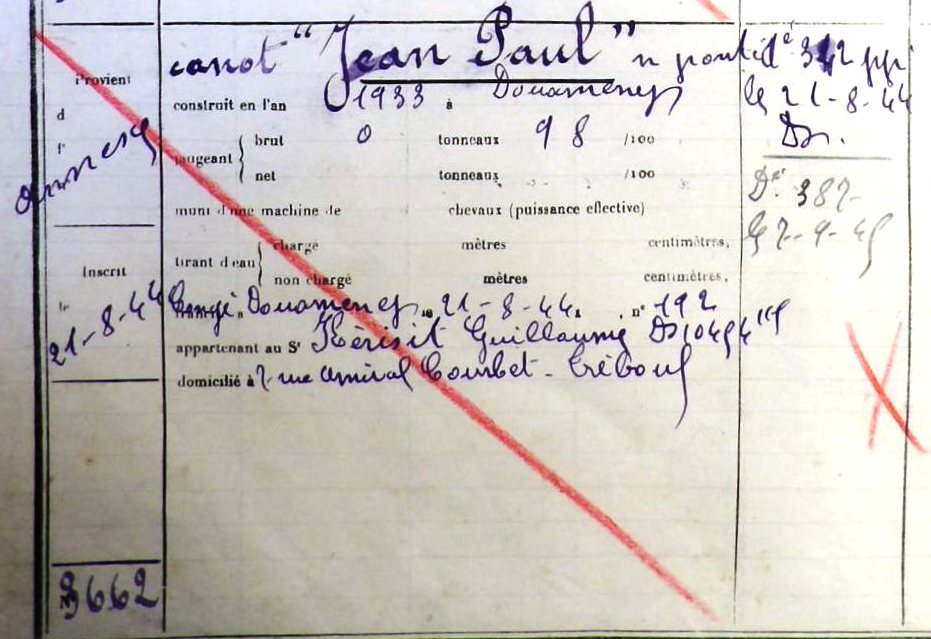 Provient
d
f'
annexe
Inscrit
le
21-8-44
3662
canot "Jean Paul" n ponté
construit en l'an 1933 à Douarnenez
jaugeant { brut 0 tonneaux 98 /100
net tonneaux /100
muni d'une machine de chevaux (puissance effective)
tirant d'eau { chargé mètres centimètres,
non chargé mètres centimètres,
Congé, Douarnenez, le 21-8-44, n° 192
appartenant au Sr Kérisit Guillaume Dz 10494
domicilié à rue amiral Courbet - Tréboul
Dé 342 ppi
le 21-8-44
Dz.
Dé 387-
le 7-9-45